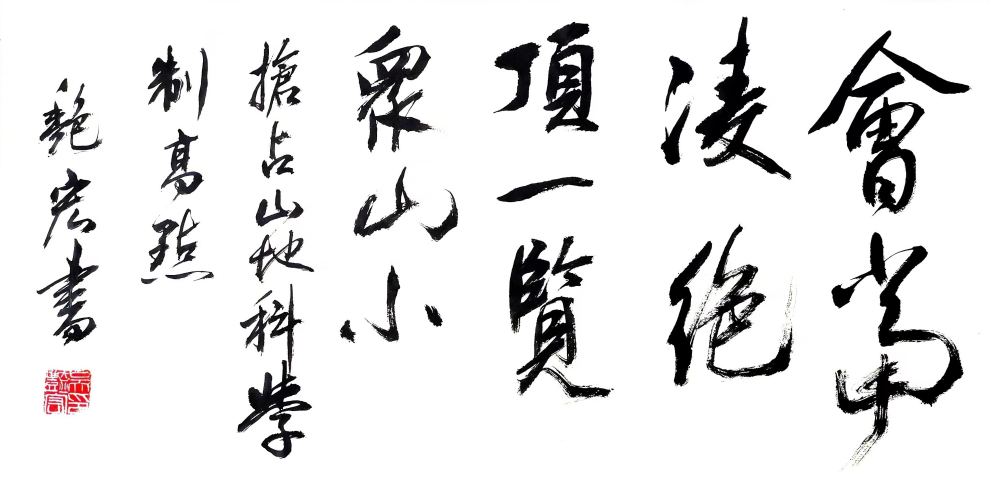 會當
淩絕
頂一覽
衆山小
搶占山地科學
制高點
艷宏書